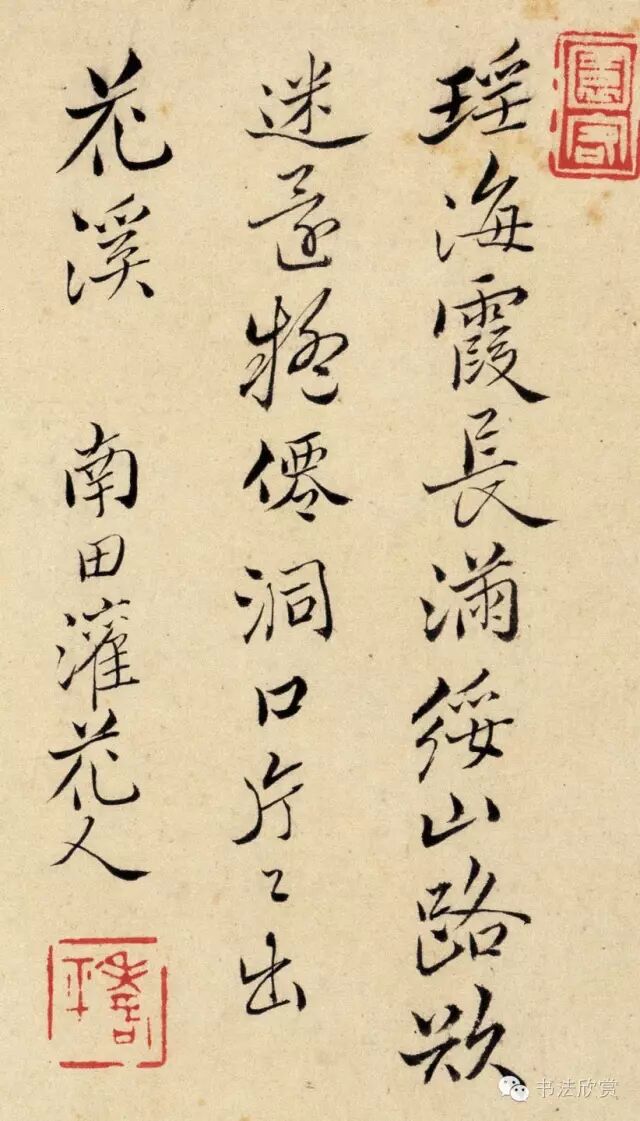 瑶海霞長滿綏山路欲
迷還疑僊洞口片〻出
花溪
南田灌花人
书法欣赏